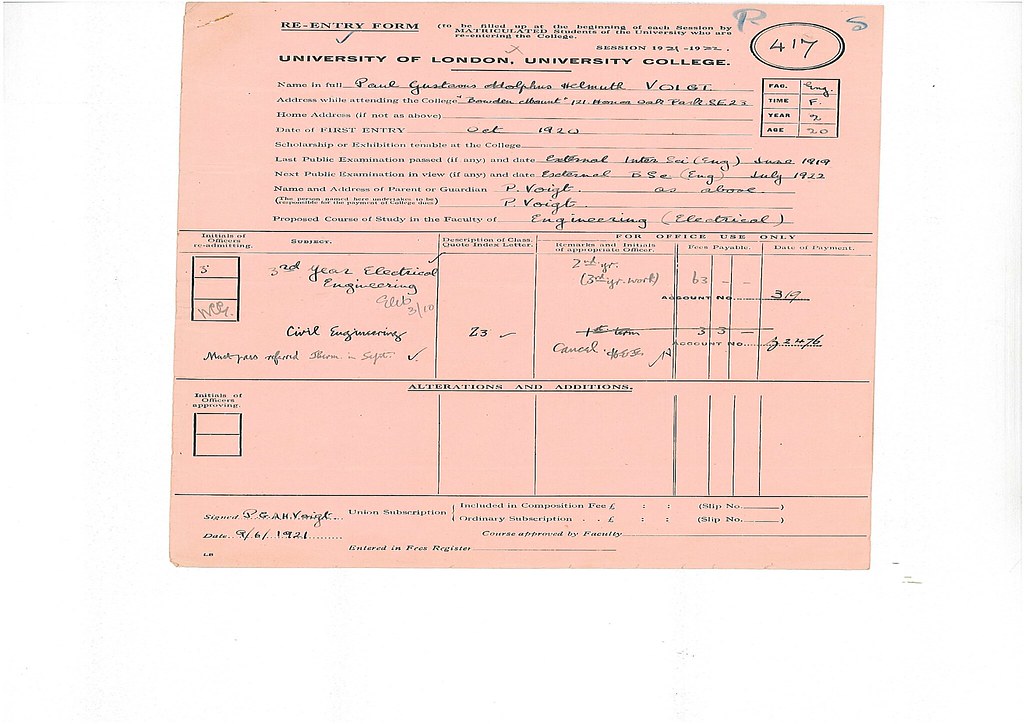 P. S
RE-ENTRY FORM (to be filled up at the beginning of each Session by
MATRICULATED Students of the University who are
re-entering the College.
417
SESSION 1921-1922.
UNIVERSITY OF LONDON, UNIVERSITY COLLEGE.
Name in full Paul Gustavus Adolphus Helmuth VOIGT
FAC. Eng.
Address while attending the College "Bowden Mount" 121 Honor Oak Park SE23
TIME F.
Home Address (if not as above)
YEAR 2
Date of FIRST ENTRY Oct 1920
AGE 20
Scholarship or Exhibition tenable at the College
Last Public Examination passed (if any) and date External Inter Sci (Eng) June 1919
Next Public Examination in view (if any) and date External BSc (Eng) July 1922
Name and Address of Parent or Guardian P. Voigt. as above.
(The person named here undertakes to be responsible for the payment of College dues) P. Voigt
Proposed Course of Study in the Faculty of Engineering (Electrical)
Initials of Officers re-admitting. SUBJECT. Description of Class. Quote Index Letter. FOR OFFICE USE ONLY
Remarks and Initials of appropriate Officer. Fees Payable. Date of Payment.
S 3rd year Electrical 2nd yr.
Engineering (3rd yr. work) 63 - -
3/10 ACCOUNT NO. 319
Civil Engineering Z3 1st term 3 3 -
Must pass referred Therm. in Sept. Cancel. ACCOUNT NO. 2476
ALTERATIONS AND ADDITIONS.
Initials of Officers approving.
Signed P.G.A.H.Voigt Union Subscription Included in Composition Fee £ : : (Slip No. )
Ordinary Subscription . . £ : : (Slip No. )
Date 9/6/1921 Course approved by Faculty
Entered in Fees Register
LB